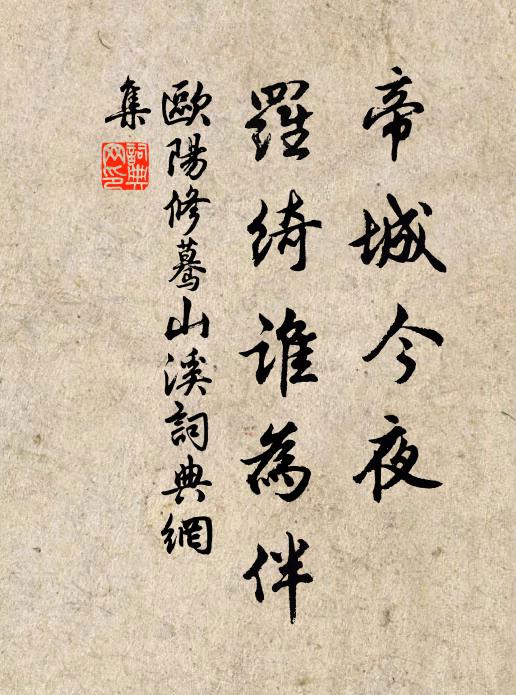 帝城今夜
羅綺誰為伴
歐陽修蓦山溪詞典網
集
詞典網印